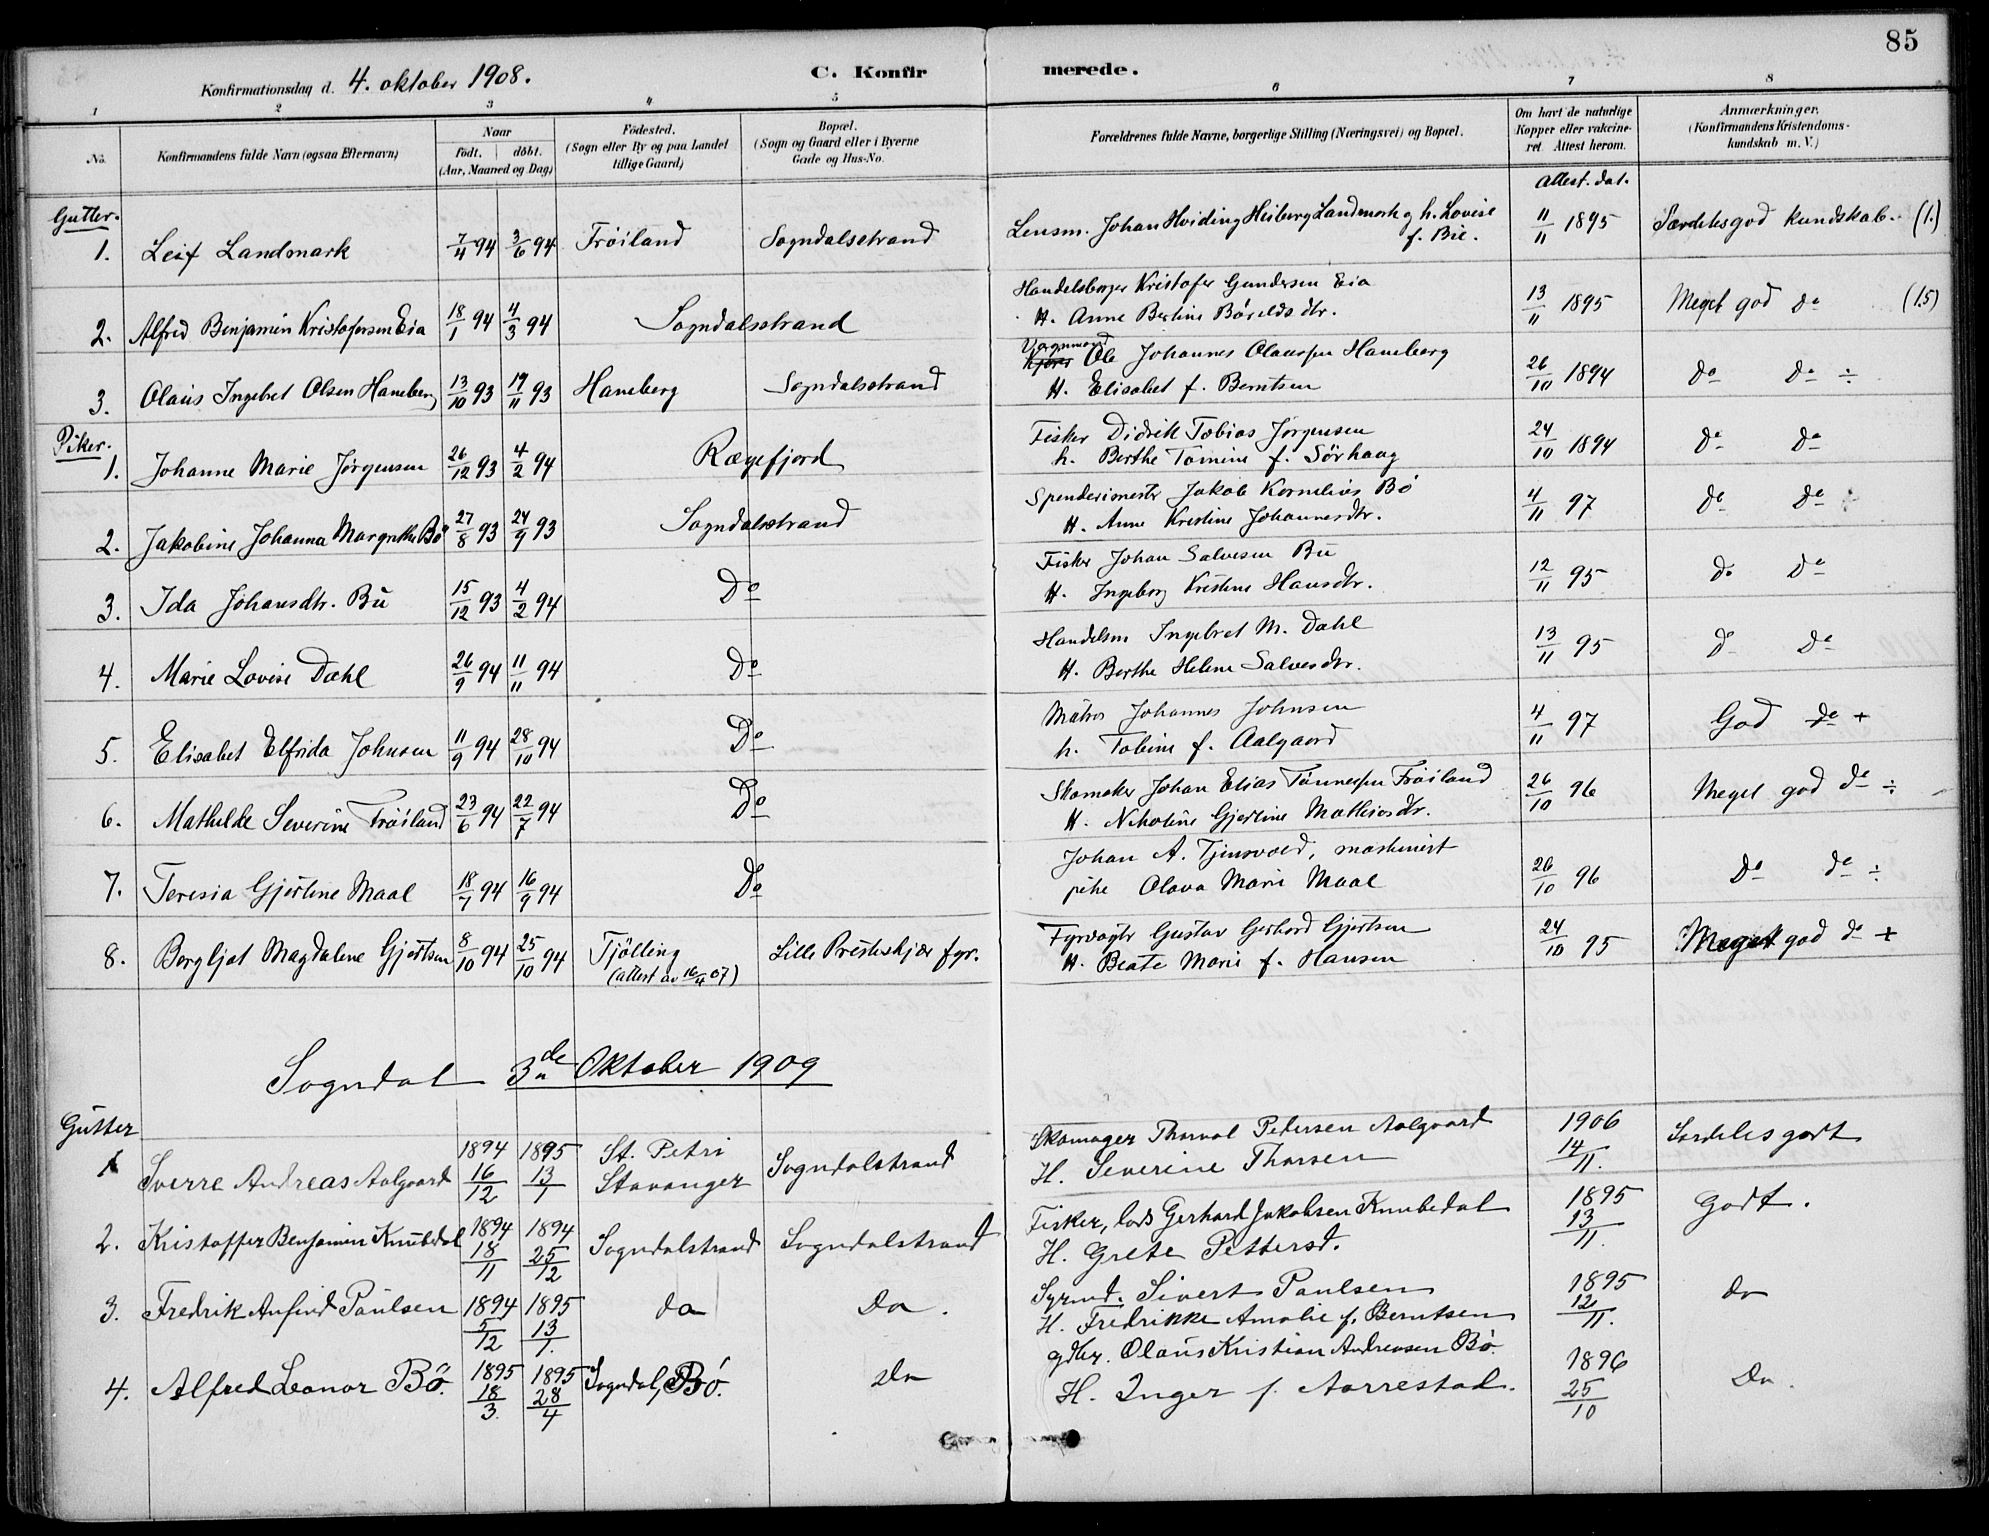 85
Konfirmationsdag d. 4. oktober 1908.
C. Konfirmerede.
1 2 3 4 5 6 7 8
No. Konfirmandens fulde Navn (ogsaa Efternavn) Naar født, døbt. (Aar, Maaned og Dag) Födested. (Sogn eller By og paa Landet tillige Gaard) Bopæl. (Sogn og Gaard eller i Byerne Gade og Hus-No. Forældrenes fulde Navne, borgerlige Stilling (Næringsvei) og Bopæl. Om havt de naturlige Kopper eller vakcineret Attest herom. Anmærkninger. (Konfirmandens Kristendomskundskab m.V.)
Attest. dat.
Gutter.
1. Leif Landmark 7/4 94 3/6 94 Frøiland Sogndalsstrand Lensm. Johan Hviding Heiberg Landmark og h. Lovise f. Bie. 11/11 1895 Særdelesgod kundskab. (1.)
2. Alfred Benjamin Kristofersen Eia 18/1 94 4/3 94 Sogndalsstrand Handelsborger Kristofer Gundersen Eia
H. Anne Bertine Bårelds dtr. 13/11 1895 Meget god do (1.5)
3. Olaus Ingebret Olsen Haneberg 13/10 93 19/11 93 Haneberg Sogndalsstrand Vognmand Ole Johannes Olausen Haneberg
H. Elisabet f. Berntsen 26/10 1894 do do ÷
Piker.
1. Johanne Marie Jørgensen 26/12 93 4/2 94 Rægefjord Fisker Didrik Tobias Jørgensen
h. Berthe Tomine f. Sörhaag 24/10 1894 do do
2. Jakobine Johanna Margrethe Bø 27/8 93 24/9 93 Sogndalsstrand Jakob Kornelius Bö
H. Anne Kristine Johannesdtr. 4/11 97 do do
3. Ida Johansdtr. Bu 15/12 93 4/2 94 Do Fisker Johan Salvesen Bu
H. Ingeborg Kristine Hansdtr. 12/11 95 do do
4. Marie Lovise Dahl 26/9 94 11/11 94 Do Handelsm Ingebret M. Dahl
H. Berthe Helene Salvesdtr. 13/11 95 do do
5. Elisabet Elfrida Johnsen 11/9 94 28/10 94 Do Matros Johannes Johnsen
h. Tobine f. Aalgaard 4/11 97 God do +
6. Mathilde Severine Frøiland 23/6 94 22/7 94 Do Skomaker Johan Elias Tønnessen Frøiland
H. Nikoline Gjertine Mathiasdtr. 26/10 96 Meget god do ÷
7. Teresia Gjertine Maal 18/7 94 16/9 94 Do Johan A. Tjensvold, maskinist
pike Olava Marie Maal 26/10 96 Do do ÷
8. Bergljot Magdalene Gjertsen 8/10 94 25/10 94 Tjølling
(attest av 16/4 07) Lille Presteskjær fyr. Fyrvogter Gustav Gerhard Gjertsen
H. Beate Marie f. Hansen 24/10 95 Meget god do +
Sogndal 3de Oktober 1909
Gutter
1 Sverre Andreas Aalgaard 1894 16/12 1895 13/1 St. Petri Stavanger Sogndalstrand Skomager Thorval Pedersen Aalgaard
H. Severine Thorsen 1906 14/11. Særdeles godt
2. Kristoffer Benjamin Knubedal 1894 18/11 1894 25/12 Sogndalstrand Sogndalstrand Fisker, lods Gerhard Jakobsen Knubedal
H. Grete Pettersd. 1895 13/11. Godt.
3. Fredrik Anfind Paulsen 1894 5/12 1895 13/1. do Do. Styrmd. Sivert Paulsen
H. Fredrikke Amalie f. Berntsen 1895 12/11. Do
4. Alfred Leonor Bö. 1895 18/3 1895 28/4 Sogndal, Bö. Do gdbr. Olaus Kristian Andreasen Bö.
H. Inger f. Aarrestad. 1896 25/10 Do.